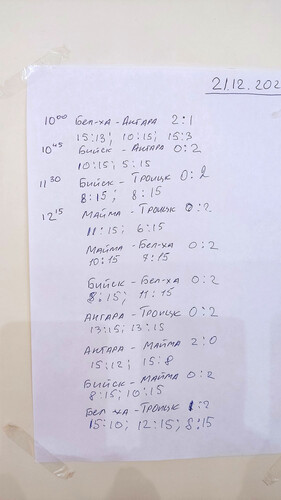 21.12.202
10⁰⁰ Бел-ха - Ангара 2:1
15:13; 10:15; 15:3
10⁴⁵ Бийск - Ангара 0:2
10:15; 5:15
11³⁰ Бийск - Троицк 0:2
8:15; 8:15
12¹⁵ Майма - Троицк 0:2
11:15; 6:15
Майма - Бел-ха 0:2
10:15 7:15
Бийск - Бел-ха 0:2
8:15; 11:15
Ангара - Троицк 0:2
13:15; 13:15
Ангара - Майма 2:0
15:12; 15:8
Бийск - Майма 0:2
8:15; 10:15
Бел-ха - Троицк 1:2
15:10; 12:15; 8:15